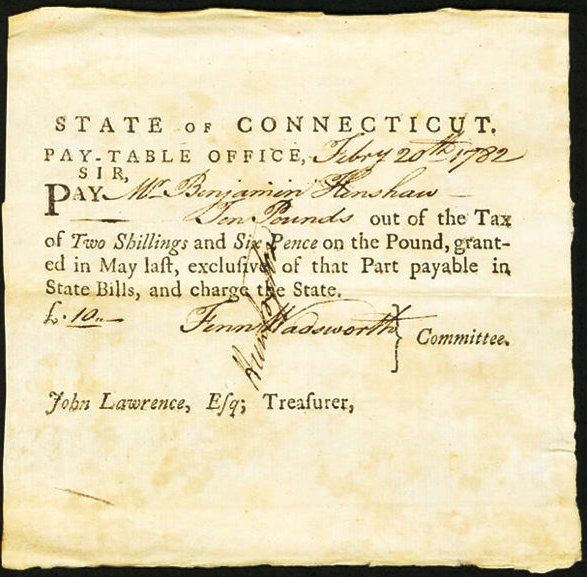 STATE OF CONNECTICUT.
PAY-TABLE OFFICE, Febry 20th 1782
SIR,
PAY Mr Benjamin Henshaw
Ten Pounds out of the Tax
of Two Shillings and Six Pence on the Pound, grant-
ed in May laſt, excluſive of that Part payable in
State Bills, and charge the State.
£. 10..
Fenn Wadsworth } Committee.
John Lawrence, Eſq; Treaſurer,